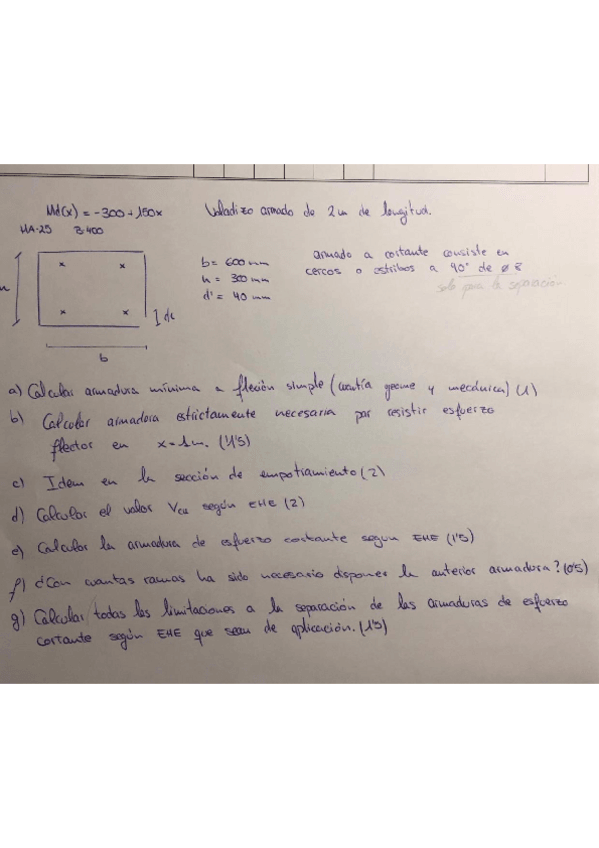 Md(x) = -300 + 150x Voladizo armado de 2m de longitud.
HA-25 B400
b = 600 mm
h = 300 mm
d' = 40 mm
armado a cortante consiste en
cercos o estribos a 90° de ø 8
solo para la separación
h
dc
b
a) Calcular armadura mínima a flexión simple (cuantía geome y mecánica) (1)
b) Calcular armadura estrictamente necesaria por resistir esfuerzo
flector en x = 1m. (1'5)
c) Idem en la sección de empotramiento (2)
d) Calcular el valor Vcu según EHE (2)
e) Calcular la armadura de esfuerzo cortante según EHE (1'5)
f) ¿Con cuantas ramas ha sido necesario disponer la anterior armadura? (0'5)
g) Calcular todas las limitaciones a la separación de las armaduras de esfuerzo
cortante según EHE que sean de aplicación. (1'5)